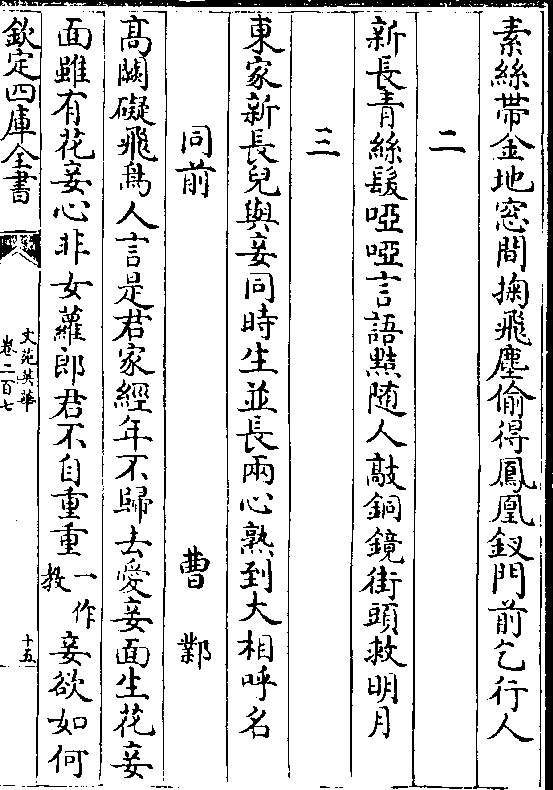 素絲帶金地窓間掬飛塵偷得鳳凰釵門前乞行人
二
新長青絲髮啞啞言語黠随人敲銅鏡街頭救明月
三
東家新長兒與妾同時生並長兩心熟到大相呼名
同前 曹鄴
髙闕礙飛鳥人言是君家經年不歸去愛妾面生花妾
面雖有花妾心非女蘿郎君不自重重一作教妾欲如何
欽定四庫全書
文苑英華
卷二百七
十五